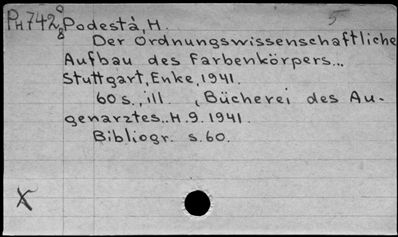 PH742 8/8 Podestà, H. 5
Der Ordnungswissenschaftliche
Aufbau des Farbenkörpers...
Stuttgart, Enke, 1941.
60 s., ill. (Bücherei des Au-
genarztes.. H. 9. 1941.
Bibliogr. s. 60.
X